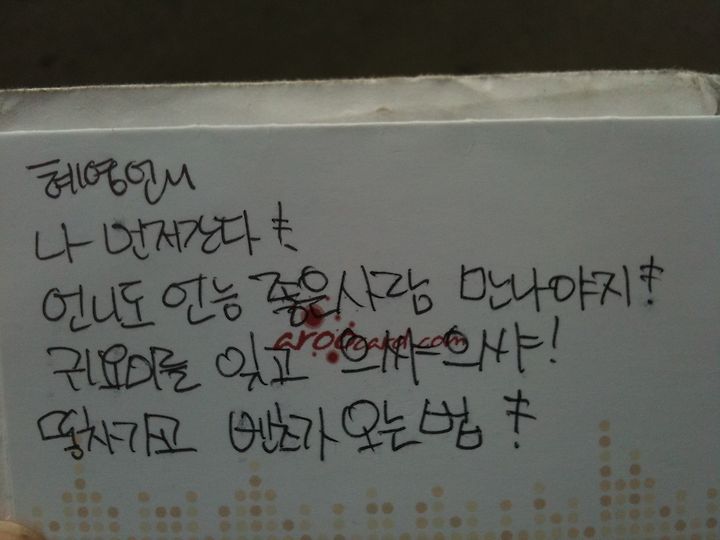 혜영언니
나 먼저간다ㅎ
언니도 언능 좋은사람 만나야지ㅎ
귀요미를 잊고 으쌰으쌰!
똥차가고 벤츠가 오는법ㅎ